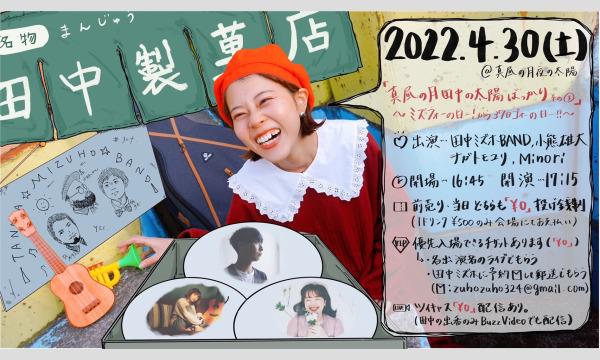 名物
まんじゅう
田中製菓店
TANAKA MIZUHO BAND!
2022.4.30(土)
@真昼の月夜の太陽
「真昼の月田中の太陽ばっかり その①」
出演…田中ミズホBAND,小熊雄大
ナガトモユリ,Minori
開場…16:45 開演…17:15
前売り・当日どちらも"¥0"投げ銭制
(1ドリンク¥500のみ会場にてお支払い)
VIP 優先入場できるチケットあります("¥0")
・各出演者のライブでもらう
・田中ミズホに予約Mし郵送でもらう
(M:zuhozuho324@gmail.com)
LIVE ツイキャス"¥0"配信あり。
(田中の出番のみBuzzVideoでも配信)